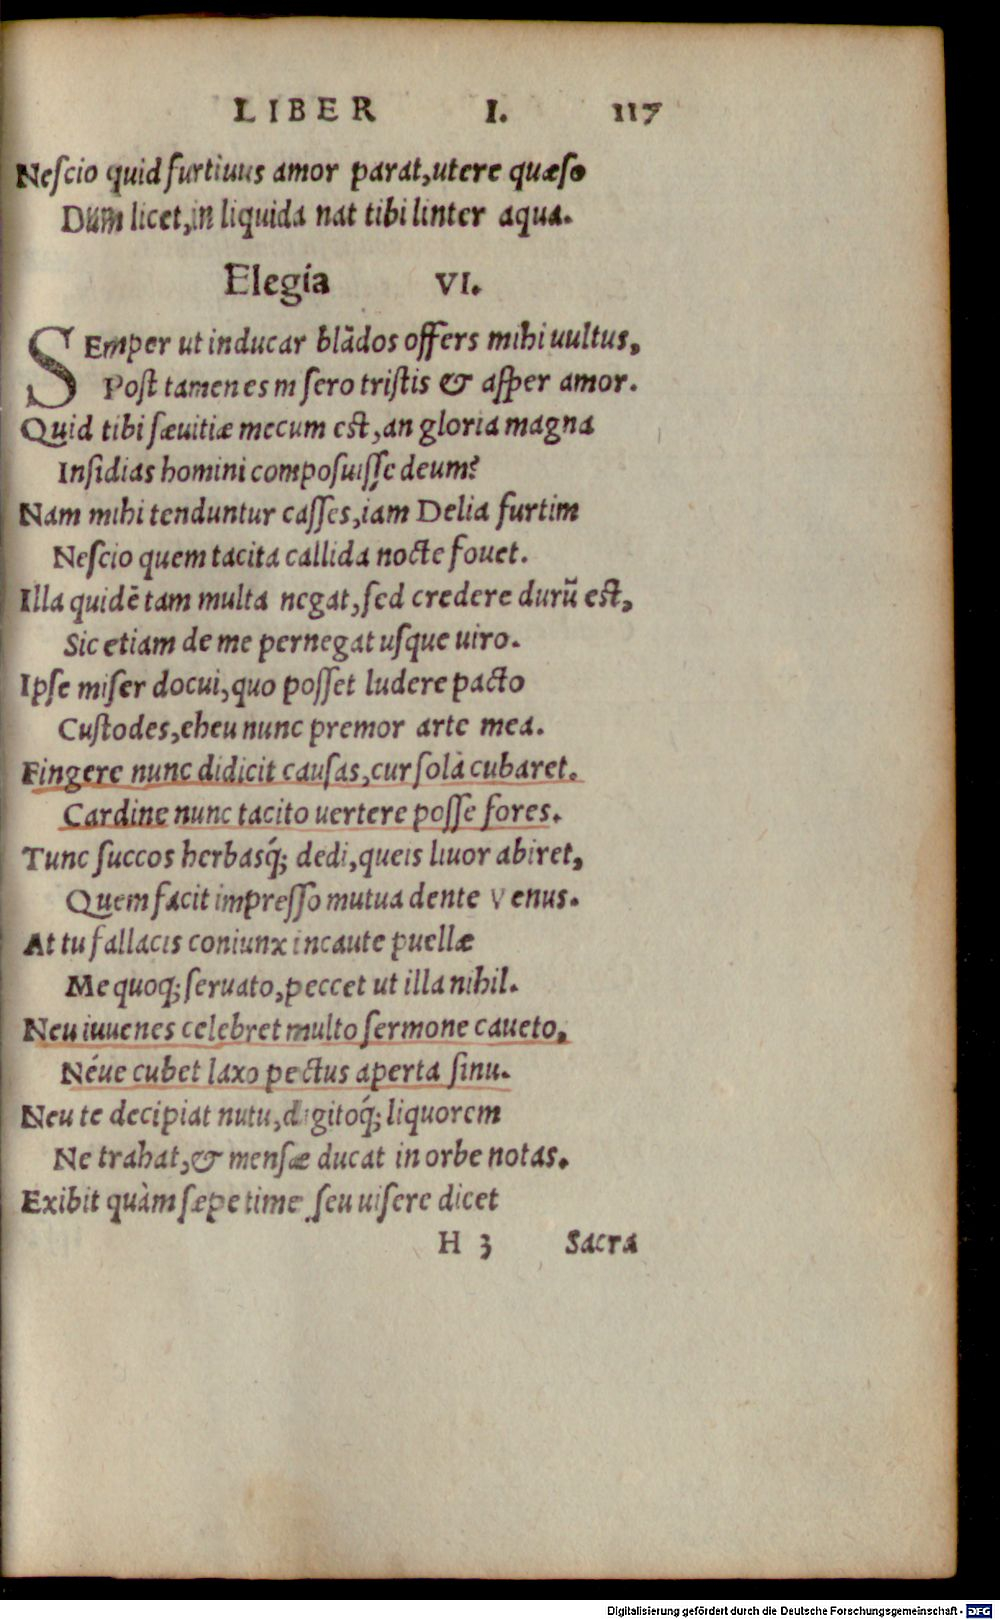 LIBER I. 117
Neſcio quid furtiuus amor parat,utere quæſo
Dum licet,in liquida nat tibi linter aqua.
Elegia VI.
SEmper ut inducar blādos offers mihi uultus,
Poſt tamen es m ſero triſtis & aſper amor.
Quid tibi ſæuitiæ mecum eſt,an gloria magna
Inſidias homini compoſuiſſe deum?
Nam mihi tenduntur caſſes,iam Delia furtim
Neſcio quem tacita callida nocte fouet.
Illa quidē tam multa negat,ſed credere durū eſt,
Sic etiam de me pernegat uſque uiro.
Ipſe miſer docui,quo poſſet ludere pacto
Cuſtodes,eheu nunc premor arte mea.
Fingere nunc didicit cauſas,cur ſola cubaret.
Cardine nunc tacito uertere poſſe fores.
Tunc ſuccos herbasq́; dedi,queis liuor abiret,
Quem facit impreſſo mutua dente Venus.
At tu fallacis coniunx incaute puellæ
Me quoq; ſeruato,peccet ut illa nihil.
Neu iuuenes celebret multo ſermone caueto,
Néue cubet laxo pectus aperta ſinu.
Neu te decipiat nutu,digitoq́; liquorem
Ne trahat,& menſæ ducat in orbe notas.
Exibit quàm ſæpe time ſeu uiſere dicet
H 3 Sacra
Digitalisierung gefördert durch die Deutsche Forschungsgemeinschaft - DFG